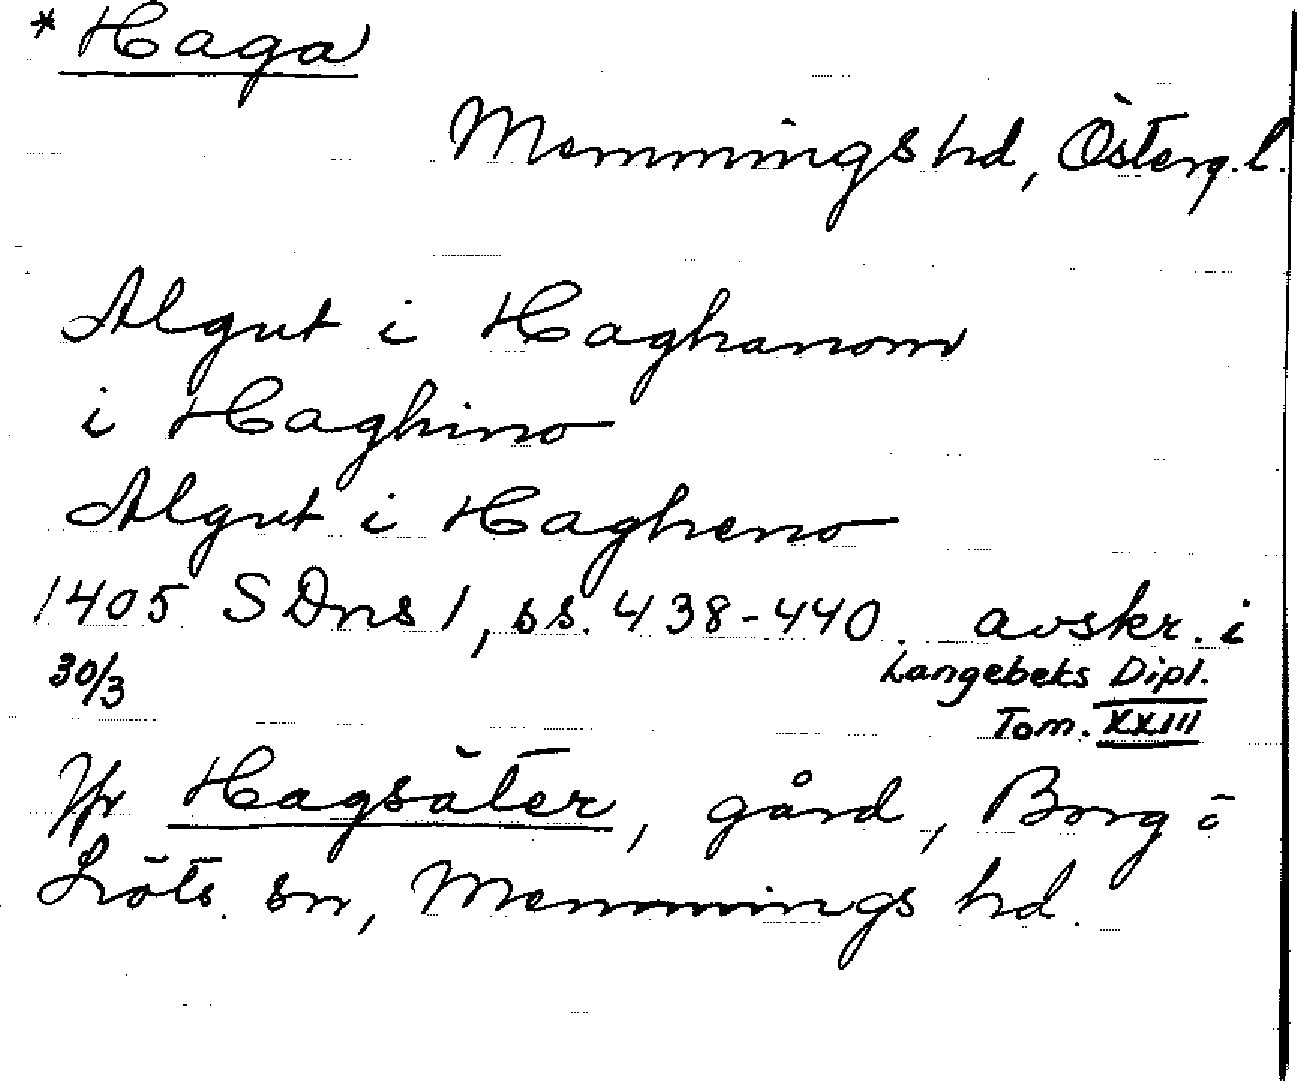 * Haga
Memmings hd, Österg.l.
Algut i Haghanom
i Haghino
Algut i Hagheno
1405 SDns 1, ss. 438-440. avskr. i
30/3 Langebeks Dipl.
Tom. XXIII
Jfr Hagsäter, gård, Borg o
Löts sn, Memmings hd.